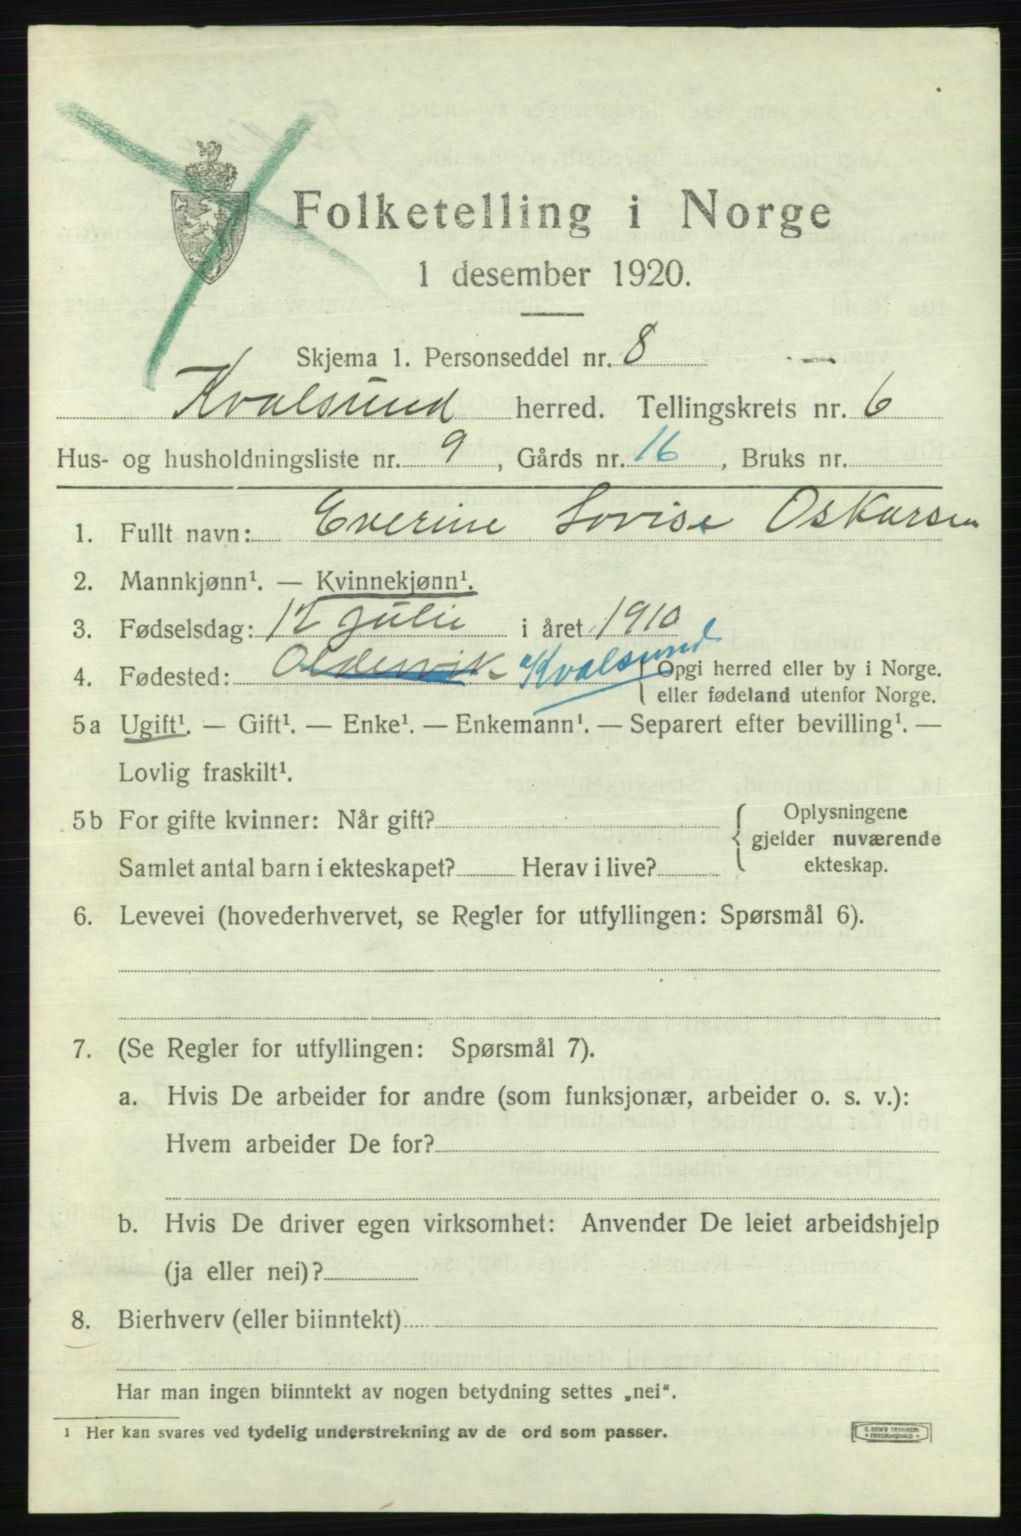 Folketelling i Norge
1 desember 1920.
Skjema 1. Personseddel nr. 8
Kvalsund herred. Tellingskrets nr. 6
Hus- og husholdningsliste nr. 9, Gårds nr. 16, Bruks nr.
1. Fullt navn: Everine Lovise Oskarsen
2. Mannkjønn¹. — Kvinnekjønn¹.
3. Fødselsdag: 12 Julie i året 1910
4. Fødested: Oldervik Kvalsund Opgi herred eller by i Norge.
eller fødeland utenfor Norge.
5a Ugift¹. — Gift¹. — Enke¹. — Enkemann¹. — Separert efter bevilling¹. —
Lovlig fraskilt¹.
5b For gifte kvinner: Når gift? Oplysningene
gjelder nuværende
Samlet antal barn i ekteskapet? Herav i live? ekteskap.
6. Levevei (hovederhvervet, se Regler for utfyllingen: Spørsmål 6).
7. (Se Regler for utfyllingen: Spørsmål 7).
a. Hvis De arbeider for andre (som funksjonær, arbeider o. s. v.):
Hvem arbeider De for?
b. Hvis De driver egen virksomhet: Anvender De leiet arbeidshjelp
(ja eller nei)?
8. Bierhverv (eller biinntekt)
Har man ingen biinntekt av nogen betydning settes „nei“.
1 Her kan svares ved tydelig understrekning av de ord som passer.